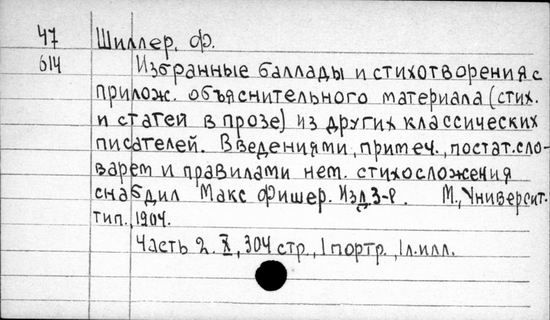 47 Шиллер, Ф.
614 Избранные баллады и стихотворения с
прилож. объяснительного материала (стих.
и статей в прозе) из других классических
писателей. Введениями, примеч., постат. сло-
варем и правилами нем. стихосложения
снабдил Макс Фишер. Изд. 3-е. М., Университ.
тип., 1904.
Часть 2. X, 304 стр., 1 портр., 1 л. илл.